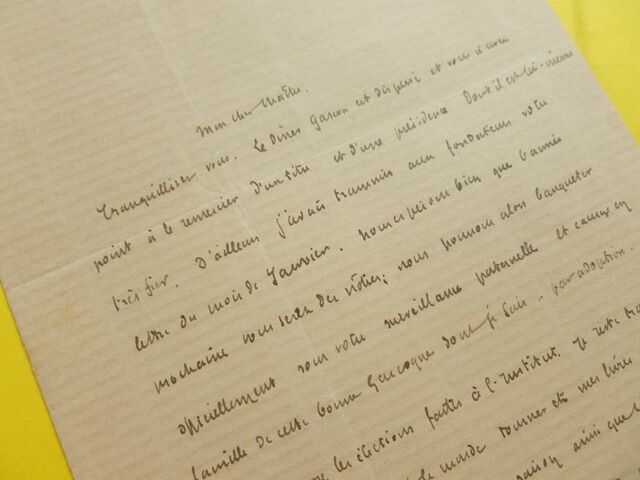 Mon cher Maître.
Tranquillisez vous. Le dîner Gascon est dispersé et vous n'avez
point à le remercier d'un titre et d'une présidence dont il est lui-même
très fier. D'ailleurs j'avais transmis aux fondateurs votre
lettre du mois de Janvier. Nous espérons bien que l'année
prochaine vous serez des nôtres; nous pourrons alors banqueter
officiellement sous votre surveillance paternelle et causer en
famille de cette bonne Gascogne dont je suis.. par adoption.
les élections faites à l'Institut. Je reste
le monde tourner et mes livres
saison ainsi que